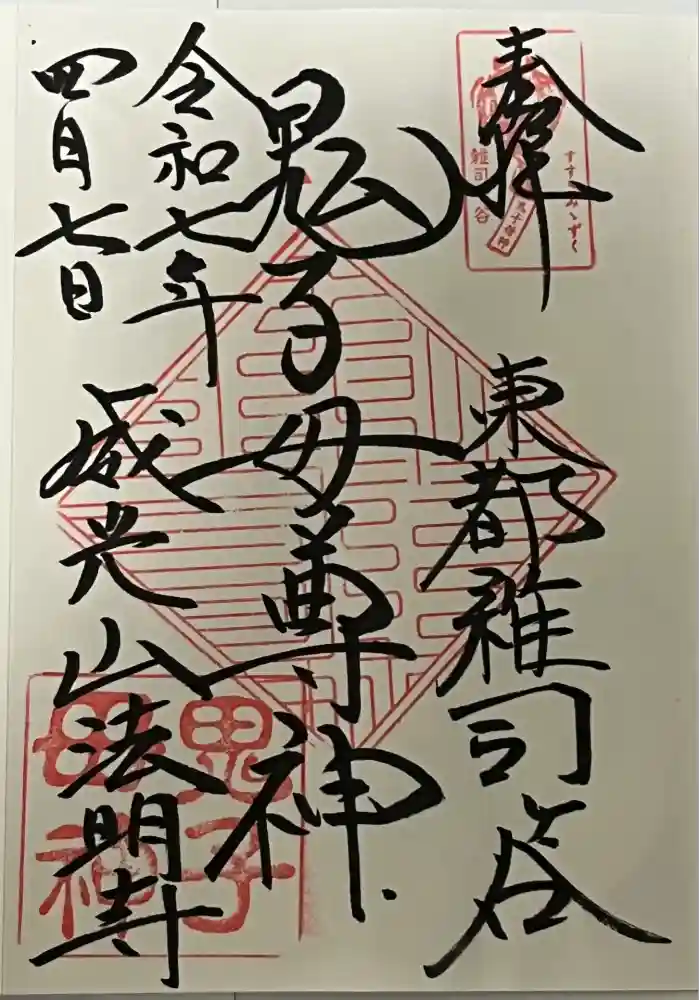 奉拝
東都雑司谷
鬼子母尊神
令和七年
四月七日
威光山法明寺
すすきみゝずく
雑司谷
鬼子母神
鬼子
母神